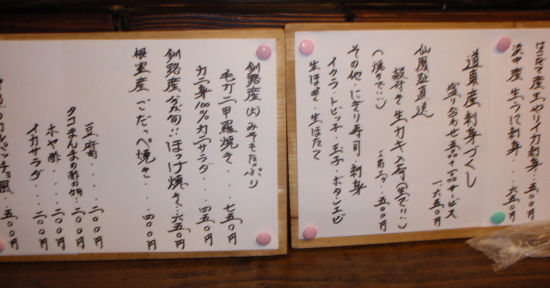 はこだて産 生やりイカ刺身・・五五〇円
浜中産 生うに刺身・・・六五〇円
道東産刺身づくし
盛り合わせ五品+一品サービス
一六五〇円
仙鳳趾直送
殻付き生カキ入荷(生で!!)
(焼きで!!) 五〇〇円
その他・にぎり寿司 刺身
イクラ・トビッコ・玉子・ボタンエビ
生ほっき・生ほたて
釧路産(大)みそもたっぷり
毛ガニ甲羅焼き・・・七五〇円
カニ身100%カニサラダ・・・四五〇円
釧路産 今が旬!!ほっけ焼き・・六五〇円
根室産 ごたっぺ焼き・・・四〇〇円
タコまんまの酢の物・・・三〇〇円
ホヤ酢・・・二〇〇円
イカサラダ・・・三〇〇円